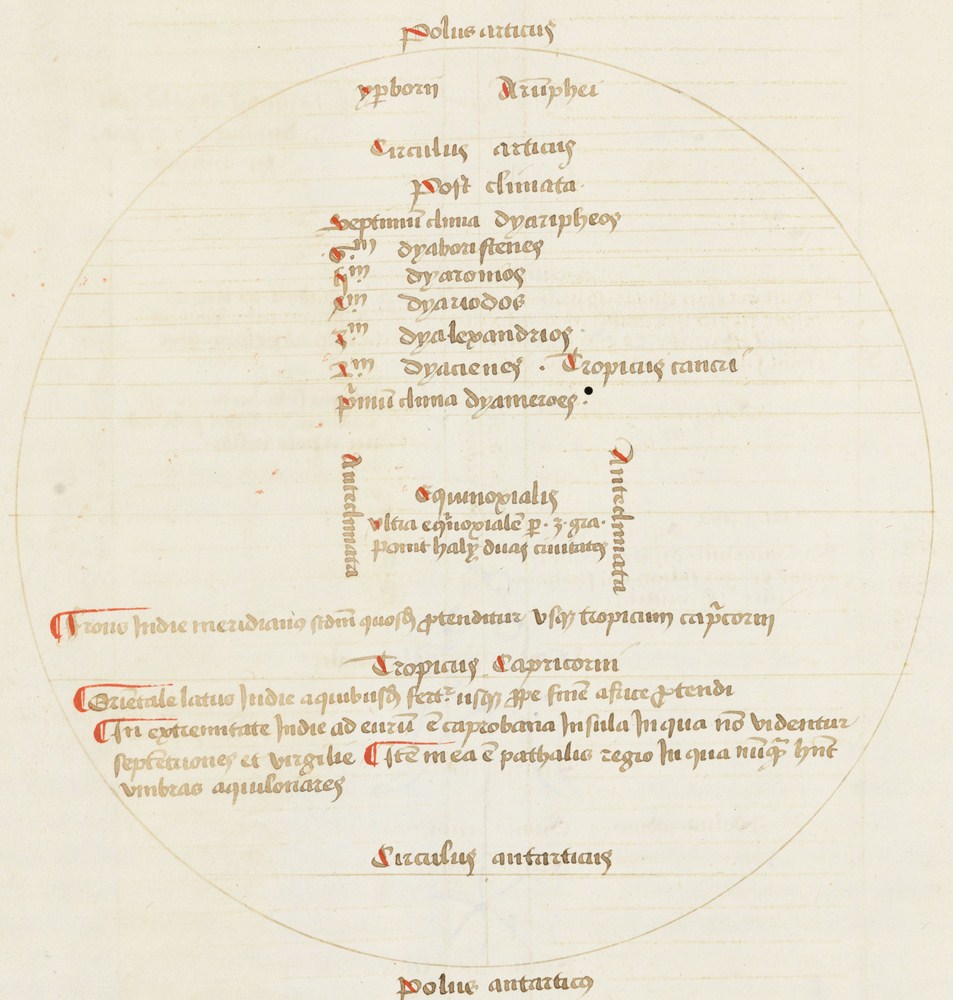 Polus articus
yperborii Arūphei
Circulus articus
Post climata
Septimū clima dyaripheos
6.m dyaboristenes
5m dyaromos
4m dyarodos
3m dyalexandrios
2.m dyacienes . Tropicus cancri
p̄mū clima dyameroes .
Anteclimata
Anteclimata
Equinoxialis
Ultra eq̄noxialē p. 3. gra.
ponit haly duas ciuitates
Frons Indie meridianꝰ scdm quosdā ꝓtenditur vsqȝ tropicum cap̄corni
Tropicus Capricorni
Oriētale latus Indie a quibusdā fert usqȝ ꝓpe finē africe ꝓtendi
In extremitate Indie ad eurū ē caprobana Insula In qua nō videntur
septētriones et virgilie Itē in ea ē pathalis regio In qua nūqȝ hn̄t
vmbras aquilonares
Circulus antarticus
Polus antarticꝰ